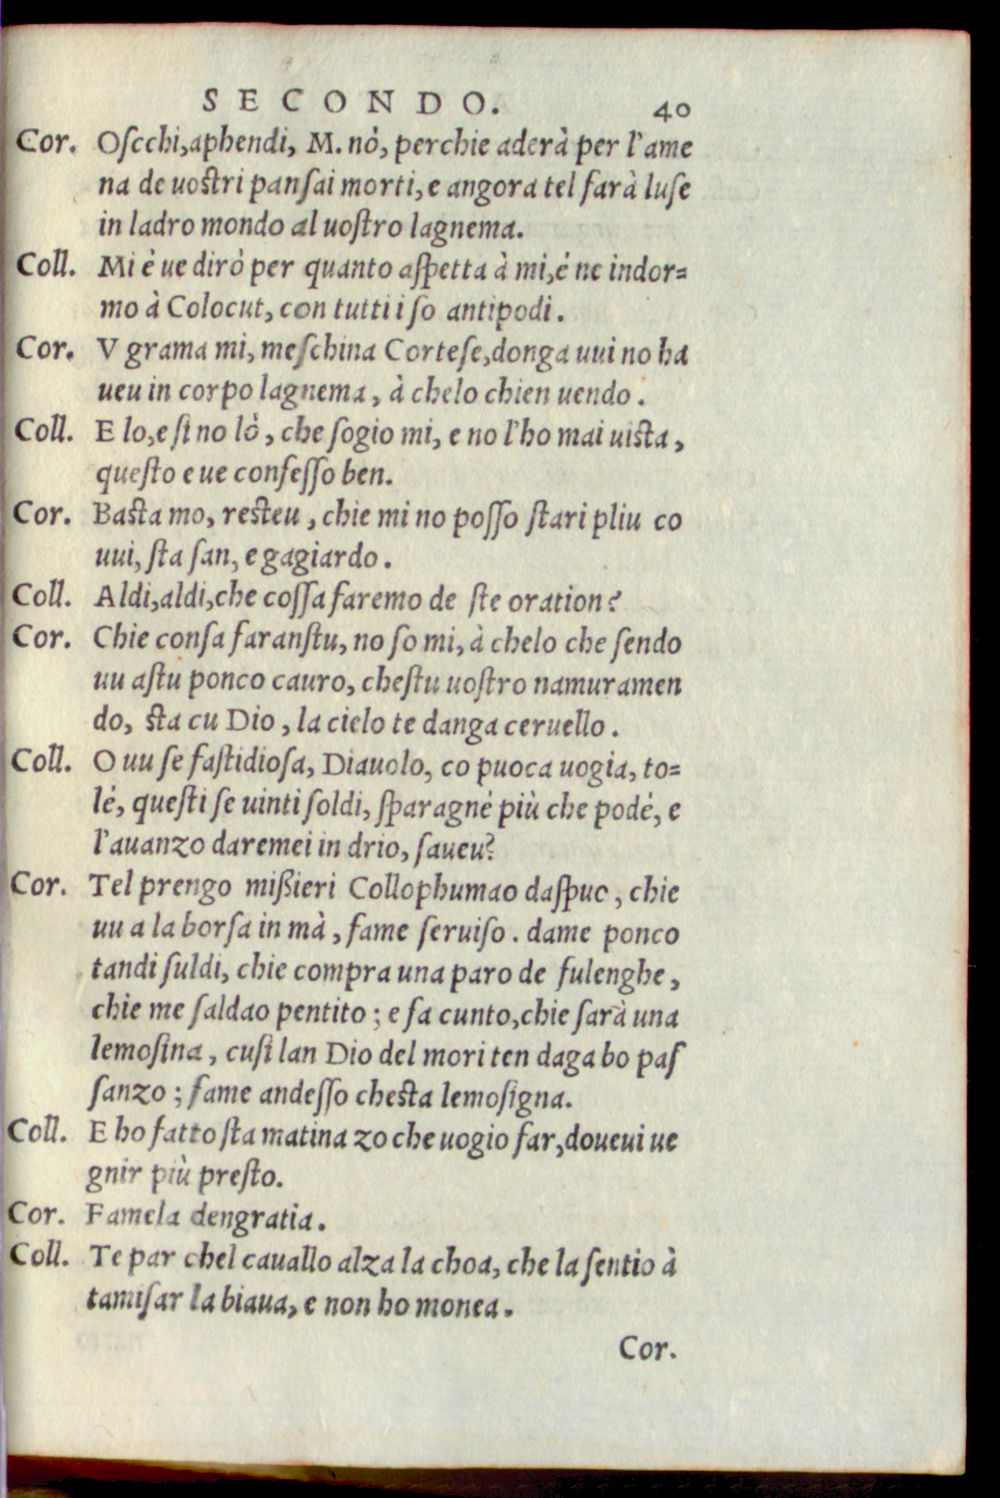 SECONDO. 40
Cor. Oſcchi,aphendi, M. nò, perchie aderà per l'ame
na de uoſtri panſai morti, e angora tel farà luſe
in ladro mondo al uoſtro lagnema.
Coll. Mi é ue dirò per quanto aſpetta à mi,é ne indor=
mo à Colocut, con tutti i ſo antipodi.
Cor. V grama mi, meſchina Corteſe,donga uui no ha
ueu in corpo lagnema, à chelo chien uendo.
Coll. E lo,e ſi no lò, che ſogio mi, e no l'ho mai uiſta,
queſto e ue confeſſo ben.
Cor. Baſta mo, reſteu, chie mi no poſſo ſtari pliu co
uui, ſta ſan, e gagiardo.
Coll. Aldi,aldi,che coſſa faremo de ſte oration?
Cor. Chie conſa faranſtu, no ſo mi, à chelo che ſendo
uu aſtu ponco cauro, cheſtu uoſtro namuramen
do, ſta cu Dio, la cielo te danga ceruello.
Coll. O uu ſe faſtidioſa, Diauolo, co puoca uogia, to=
lé, queſti ſe uinti ſoldi, ſparagné più che podé, e
l'auanzo daremei in drio, ſaueu?
Cor. Tel prengo mißieri Collophumao daſpuc, chie
uu a la borſa in mà, fame ſeruiſo. dame ponco
tandi ſuldi, chie compra una paro de fulenghe,
chie me ſaldao pentito; e fa cunto,chie ſarà una
lemoſina, cuſi lan Dio del mori ten daga bo paſ
ſanzo; fame andeſſo cheſta lemoſigna.
Coll. E ho fatto ſta matina zo che uogio far,doueui ue
gnir più preſto.
Cor. Famela dengratia.
Coll. Te par chel cauallo alza la choa, che la ſentio à
tamiſar la biaua, e non ho monea.
Cor.